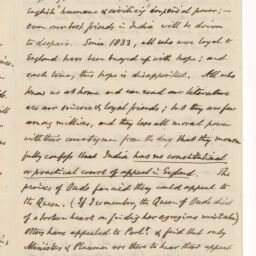 English humane & civilizing imperial power; —
even our best friends in India will be driven
to despair. Since 1833, all who were loyal to
England have been buoyed up with hope; and
each time, this hope is disappointed. All who
know us at home and can read our literature
are our sincere & loyal friends; but they are few
among millions, and they lose all moral power
with their countrymen from the day that they mourn-
fully confess that India has no constitutional
or practical court of appeal in England. The
princes of Oude fancied they could appeal to
the Queen. (If I remember, the Queen of Oude died
of a broken heart on finding her egregious mistake)
Others have appealed to Parlt. & find that only
Ministers & Placemen are there to hear their appeal